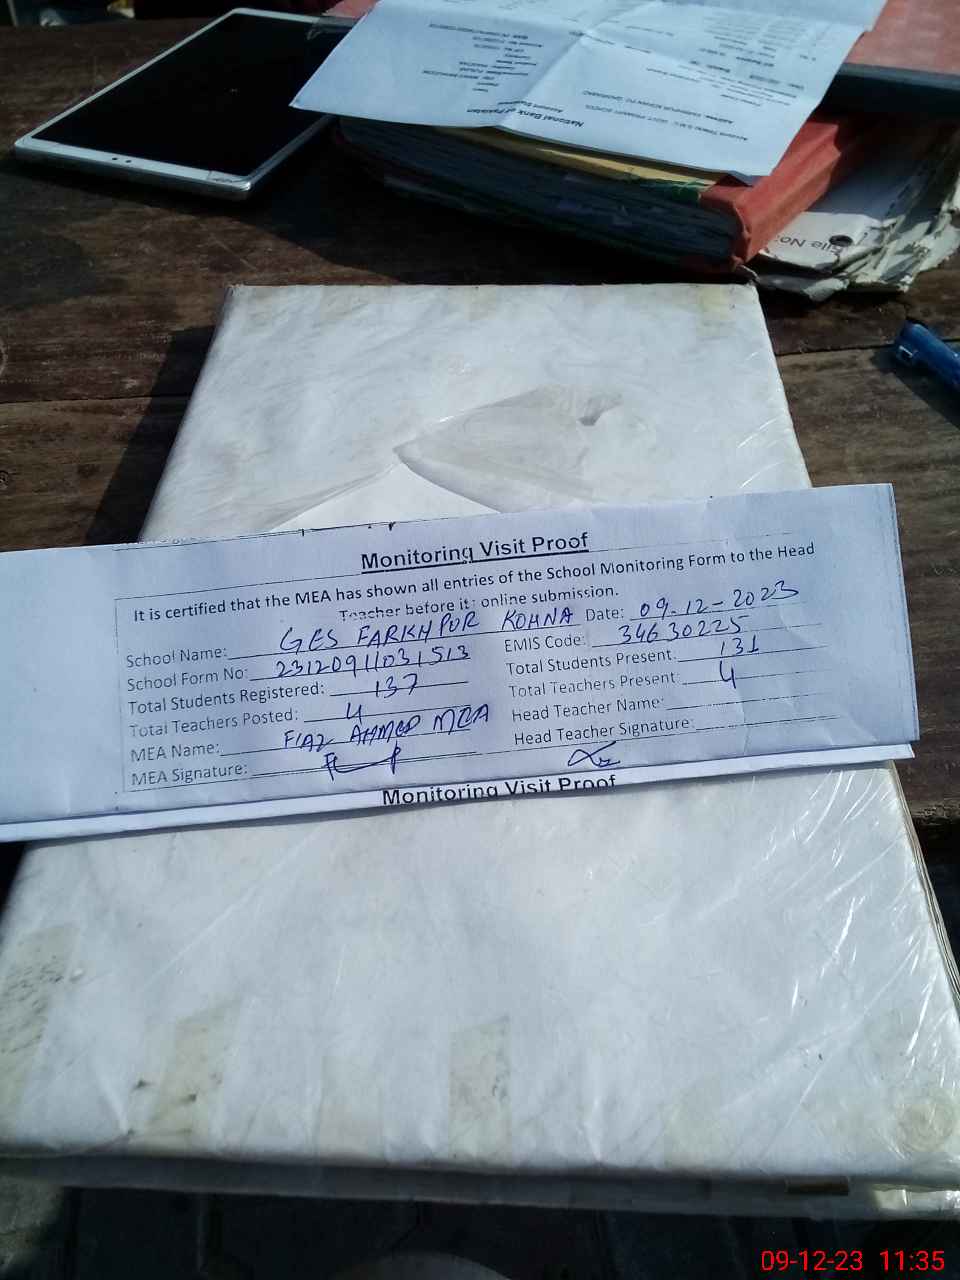 National Bank of Pakistan
Account Statement
File No:
Monitoring Visit Proof
It is certified that the MEA has shown all entries of the School Monitoring Form to the Head
Teacher before it: online submission.
School Name: GES FARKHPUR KOHNA Date: 09-12-2023
School Form No: 23120911031513 EMIS Code: 34630225
Total Students Registered: 137 Total Students Present: 131
Total Teachers Posted: 4 Total Teachers Present: 4
MEA Name: FIAZ AHMED MEA Head Teacher Name:
MEA Signature: Head Teacher Signature:
Monitoring Visit Proof
09-12-23 11:35